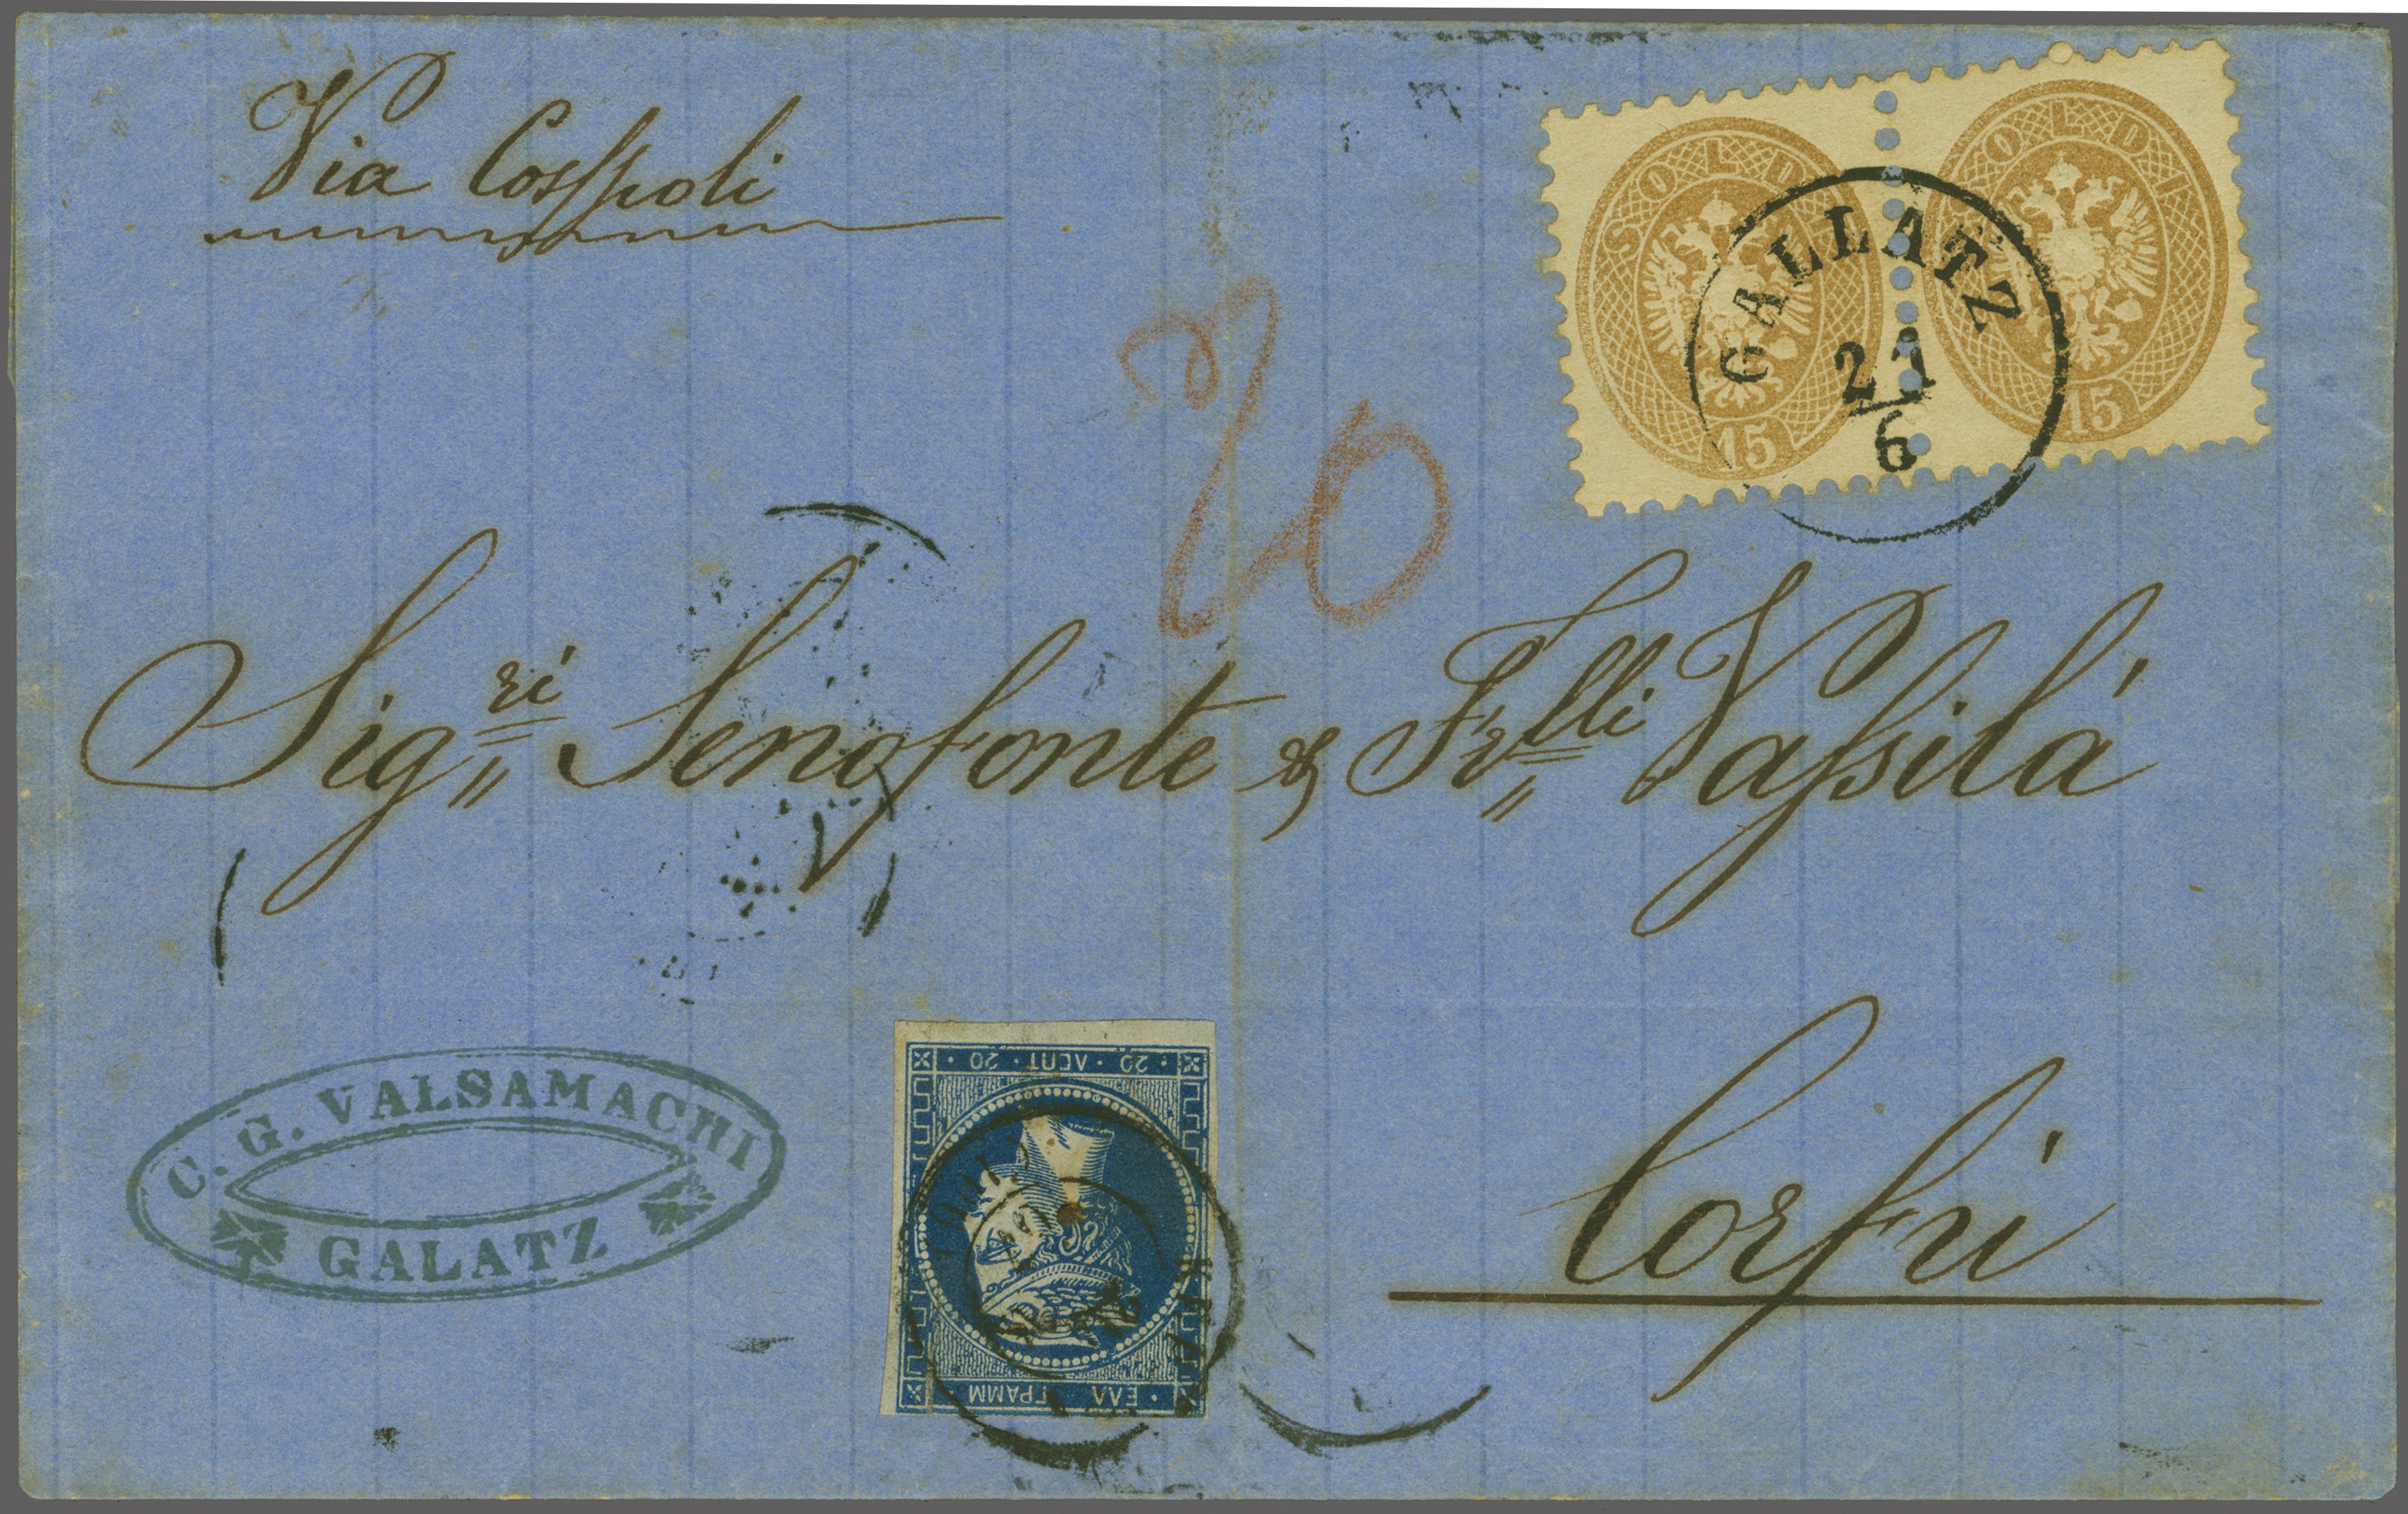 Via Cosspoli
SOLDI
15
SOLDI
15
GALLATZ
21
6
20
Sig.ri Senofonte & Frlli Vassilá
Corfú
C. G. VALSAMACHI
GALATZ
20 · ΛΕΠΤ · 20
ΕΛΛ ΓΡΑΜΜ